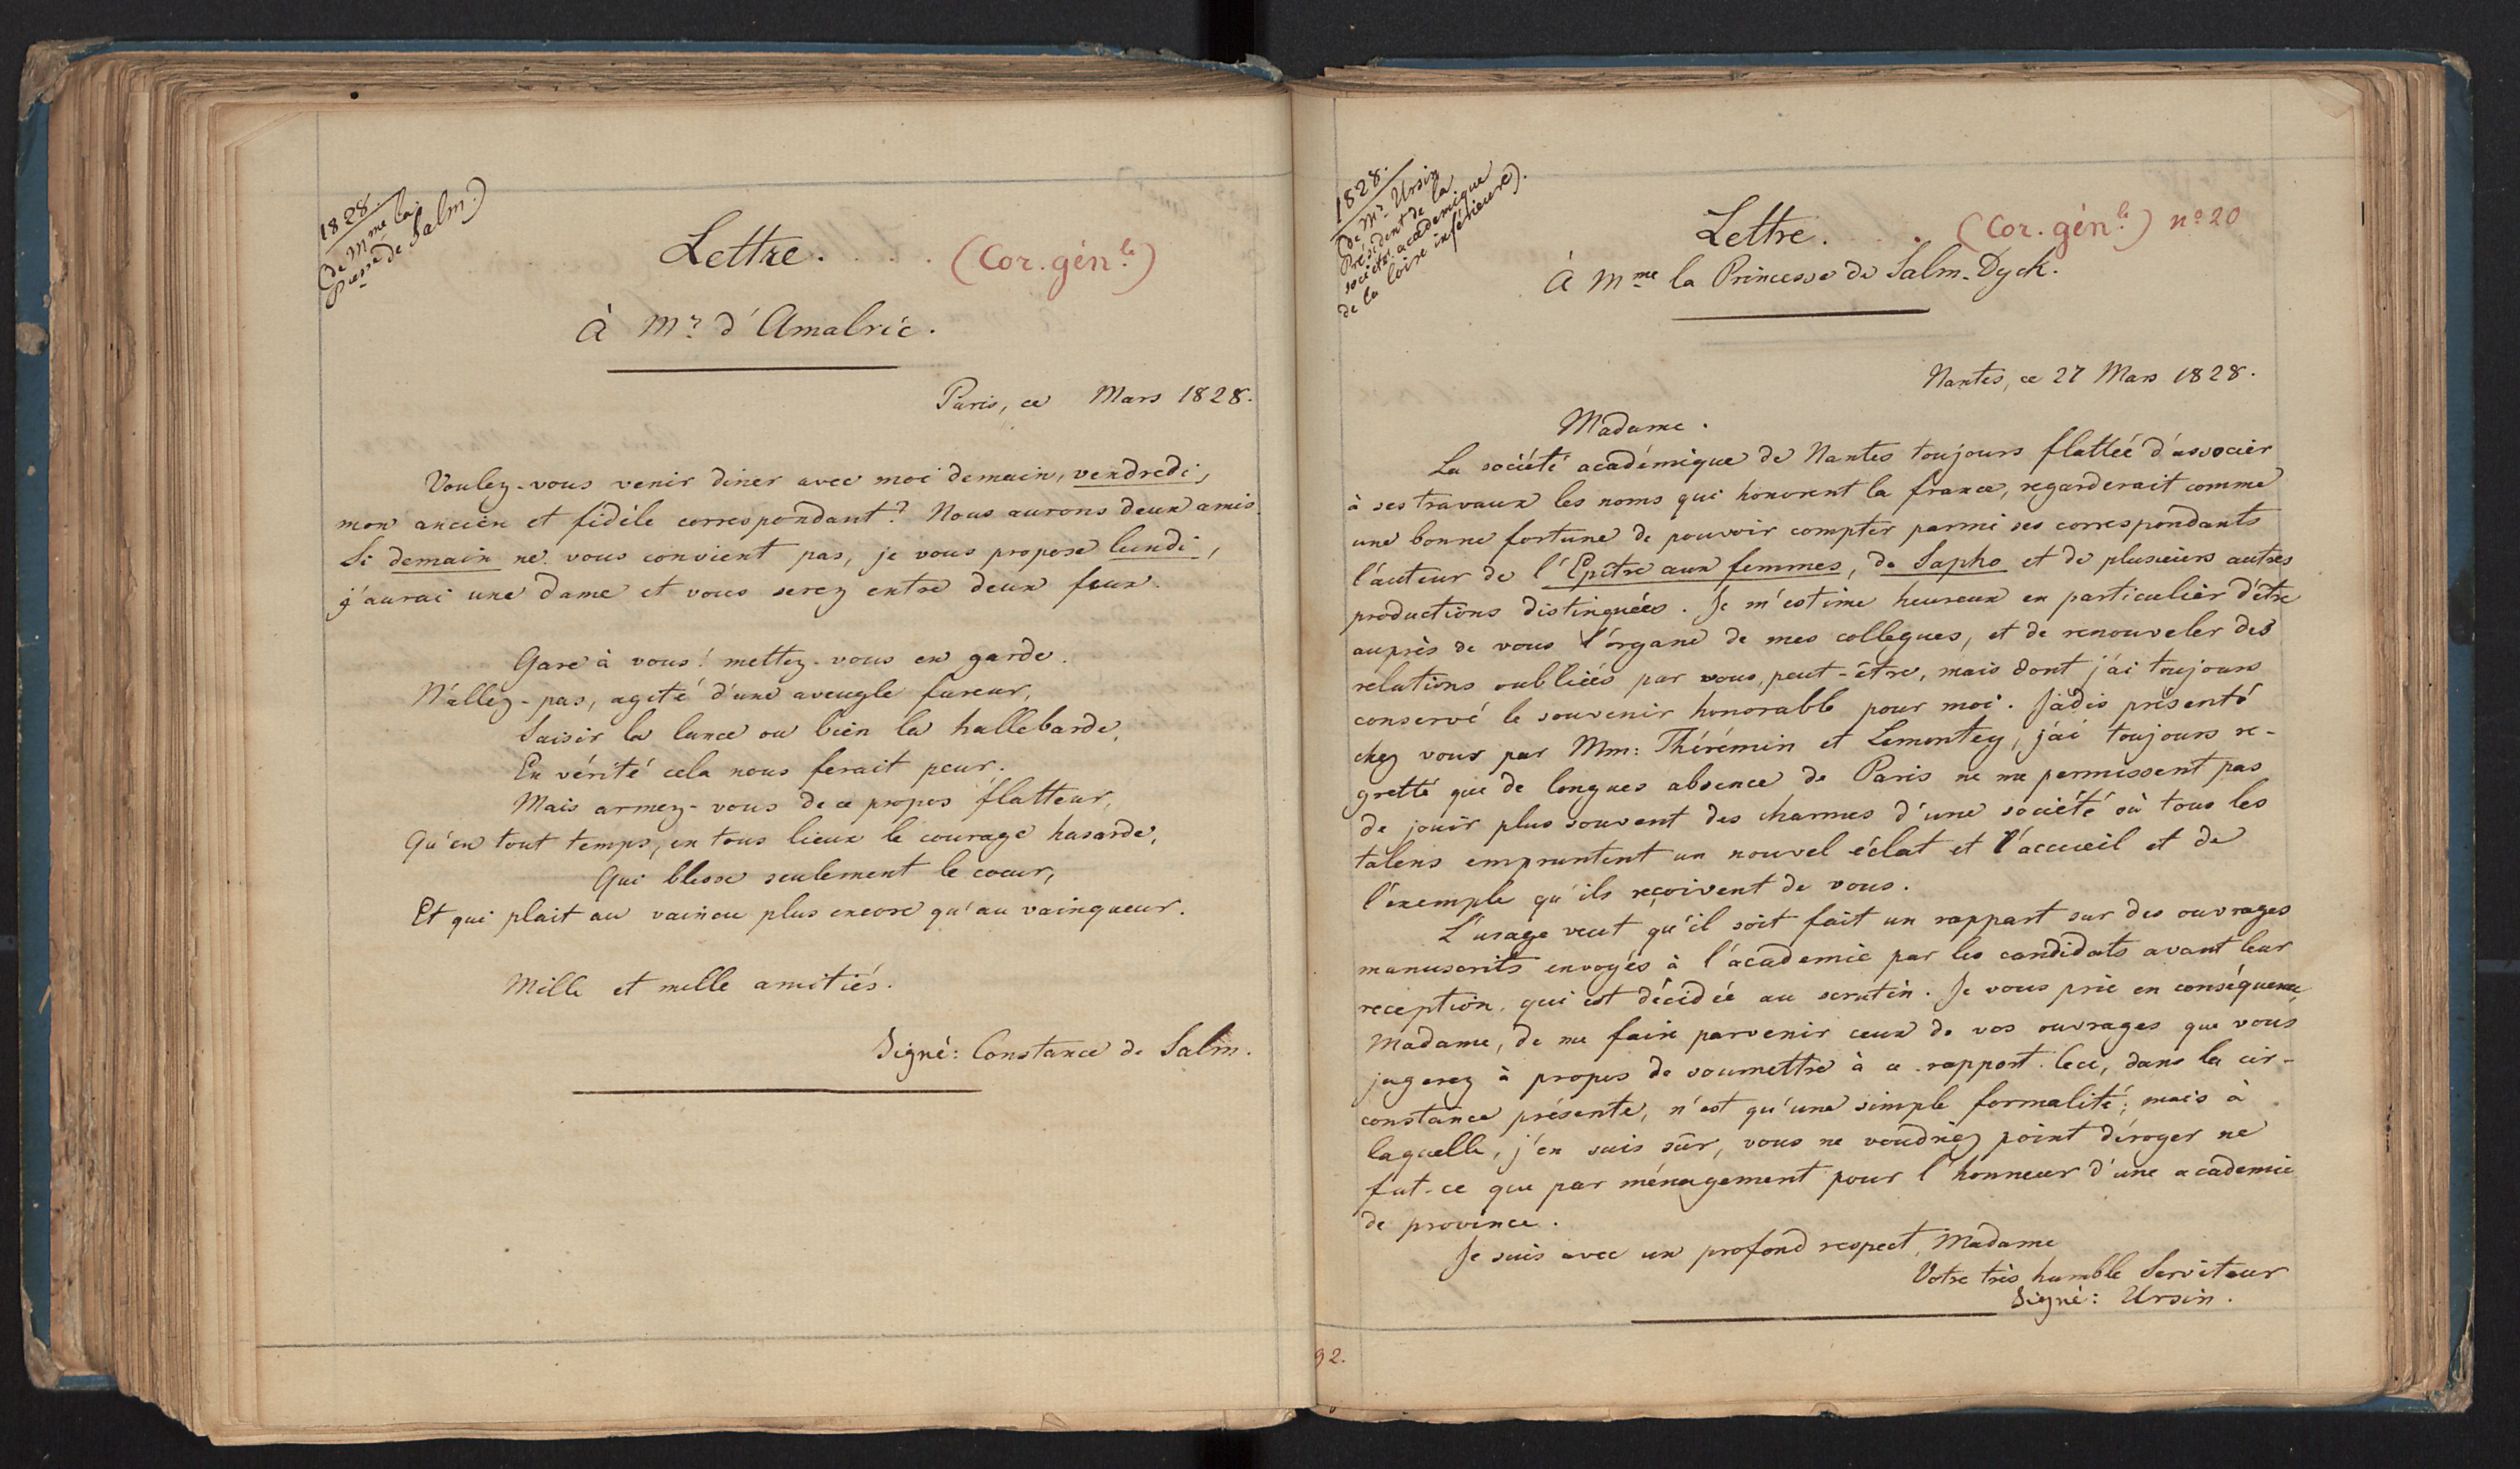 1828.
(de Mme la
Pcesse de Salm.)
Lettre. . . . (Cor. génle)
À Mr. d'Amalric.
Paris, ce Mars 1828.
Voulez-vous venir diner avec moi demain, vendredi,
mon ancien et fidèle correspondant? Nous aurons deux amis.
Si demain ne vous convient pas, je vous propose lundi,
j'aurai une dame et vous serez entre deux feux.
Gare à vous! mettez-vous en garde.
N'allez-pas, agité d'une aveugle fureur,
Saisir la lance ou bien la hallebarde,
En vérité cela nous ferait peur.
Mais armez-vous de ce propos flatteur,
Qu'en tout temps, en tous lieux le courage hasarde,
Qui blesse seulement le coeur,
Et qui plait au vaincu plus encore qu'au vainqueur.
Mille et mille amitiés.
Signé: Constance de Salm.
1828.
(de Mr. Ursin
Président de la
société académique
de la loire inférieure).
Lettre. . . (Cor. génle) no 20
À Mme la Princesse de Salm-Dyck.
Nantes, ce 27 Mars 1828.
Madame.
La société académique de Nantes toujours flattée d'associer
à ses travaux les noms qui honorent la france, regarderait comme
une bonne fortune de pouvoir compter parmi ses correspondants
l'auteur de l'Epître aux femmes, de Sapho et de plusieurs autres
productions distinguées. Je m'estime heureux en particulier d'être
auprès de vous l'organe de mes collegues, et de renouveler des
relations oubliées par vous, peut-être, mais dont j'ai toujours
conservé le souvenir honorable pour moi. Jadis présenté
chez vous par Mm: Thérémin et Lemontey, j'ai toujours re-
gretté que de longues absence de Paris ne me permissent pas
de jouir plus souvent des charmes d'une société où tous les
talens empruntent un nouvel éclat et l'accueil et de
l'exemple qu'ils reçoivent de vous.
L'usage veut qu'il soit fait un rapport sur des ouvrages
manuscrits envoyés à l'académie par les candidats avant leur
reception, qui est décidée au scrutin. Je vous prie en conséquence,
Madame, de me faire parvenir ceux de vos ouvrages que vous
jugerez à propos de soumettre à ce rapport. Ceci, dans la cir-
constance présente, n'est qu'une simple formalité; mais à
laquelle, j'en suis sûr, vous ne voudriez point déroger ne
fut-ce que par ménagement pour l'honneur d'une academie
de province.
Je suis avec un profond respect, Madame
Votre très humble Serviteur
Signé: Ursin.
92.